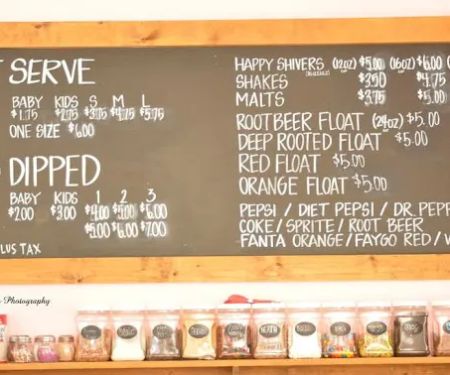 SERVE
BABY KIDS S M L
$1.75 $2.75 $3.75 $4.75 $5.75
ONE SIZE $6.00
DIPPED
BABY KIDS 1 2 3
$2.00 $3.00 $4.00 $5.00 $6.00
$5.00 $6.00 $7.00
LUS TAX
HAPPY SHIVERS (12oz) $5.00 (16oz) $6.00
SHAKES $3.50 $4.75
MALTS $3.75 $5.00
ROOTBEER FLOAT (24oz) $5.00
DEEP ROOTED FLOAT $5.00
RED FLOAT $5.00
ORANGE FLOAT $5.00
PEPSI / DIET PEPSI / DR. PEPP
COKE / SPRITE / ROOT BEER
FANTA ORANGE / FAYGO RED /
Photography
HEATH